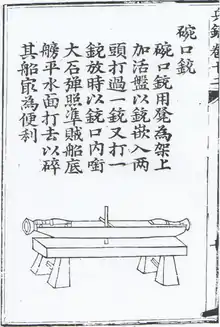 碗口銃
碗口銃用凳為架上
加活盤以銃嵌入兩
頭打過一銃又打一
銃放時以銃口內啣
大石彈照準賊船底
艕平水面打去以碎
其船最為便利